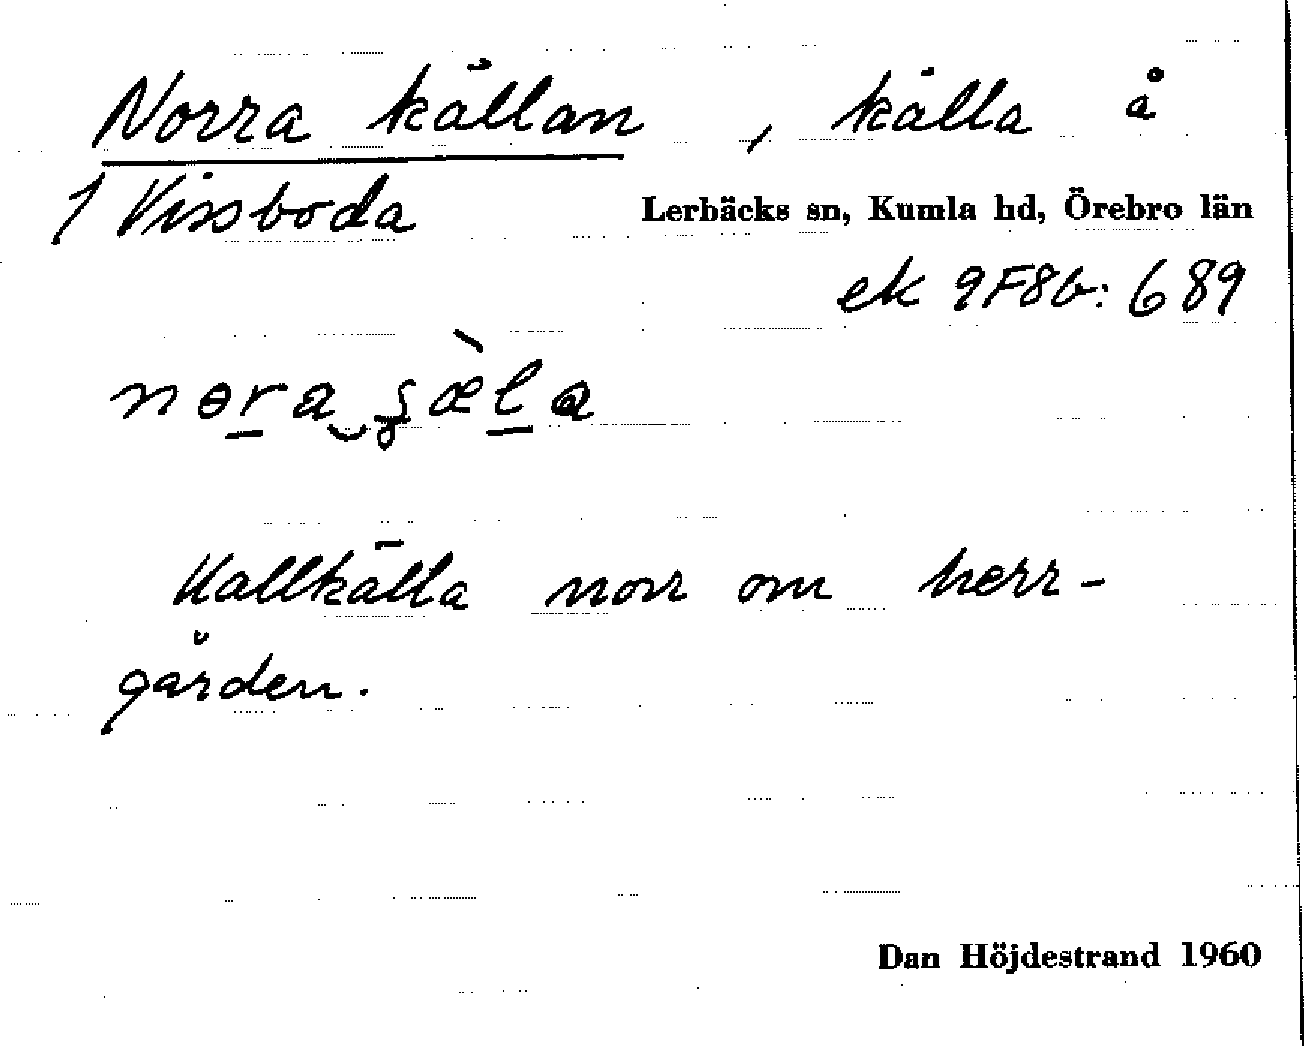 Norra källan, källa å
1 Vissboda Lerbäcks sn, Kumla hd, Örebro län
ek 9F8b: 689
Kallkälla norr om herr-
gården.
Dan Höjdestrand 1960